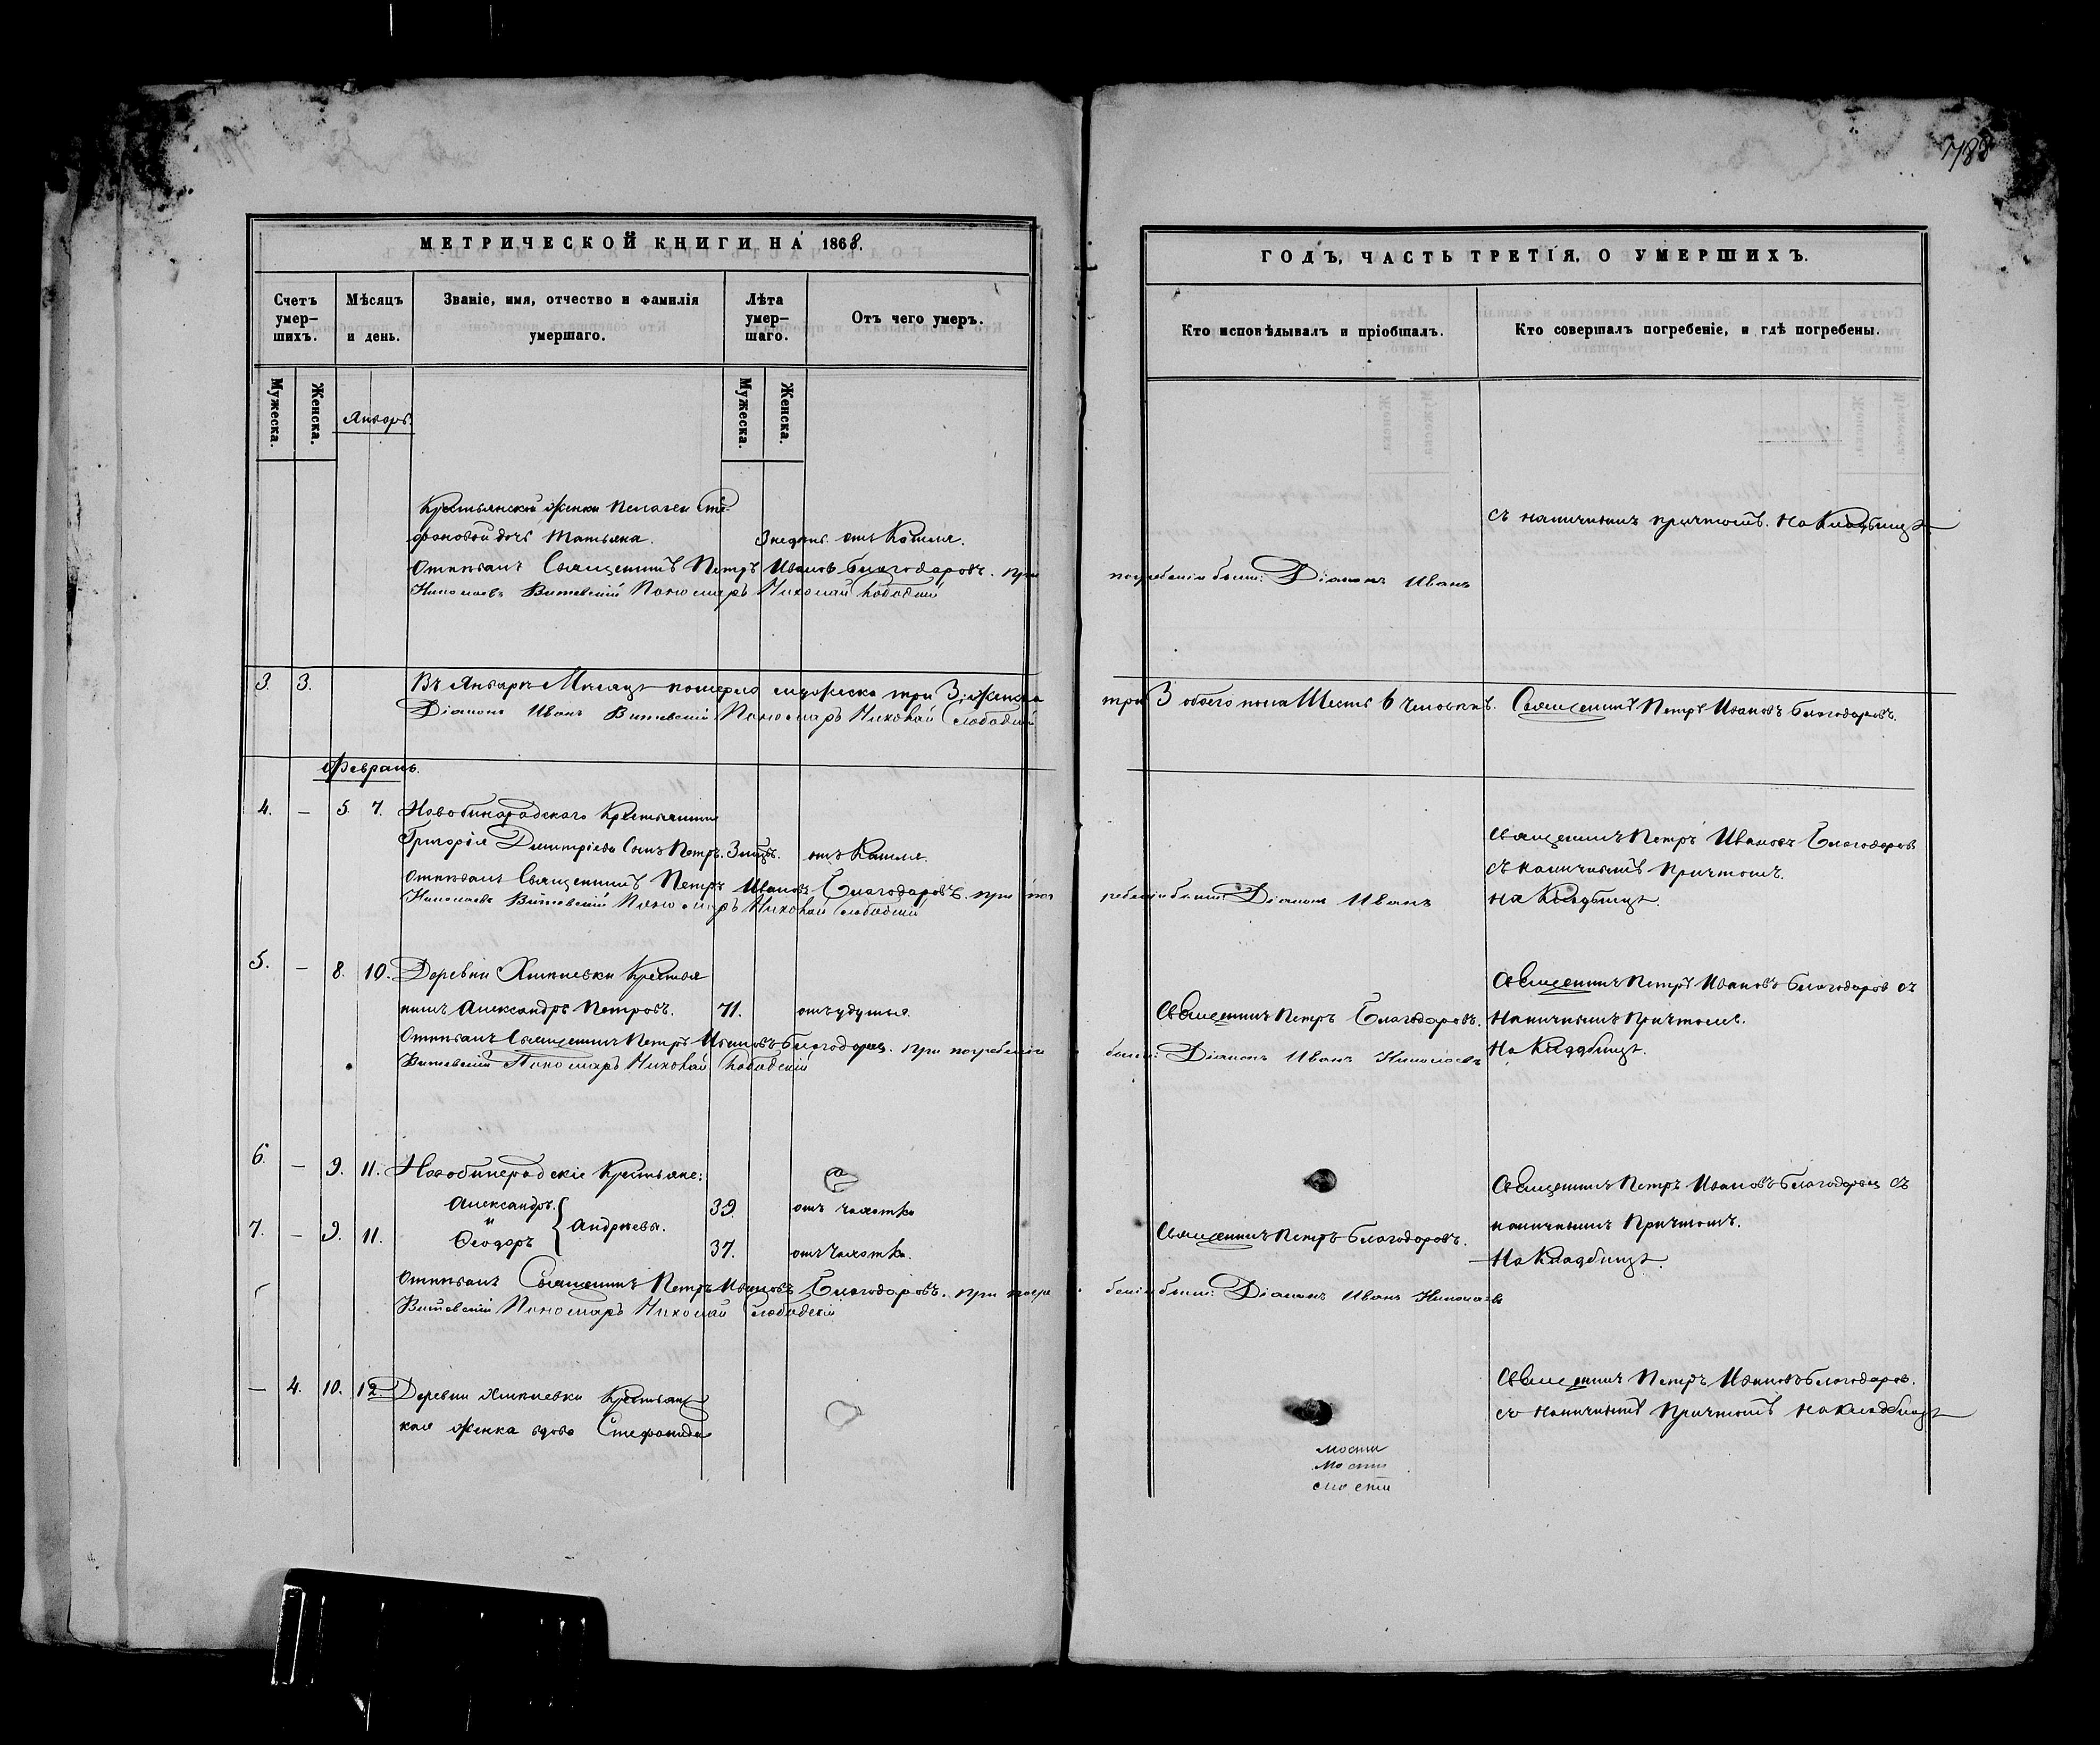 788
МЕТРИЧЕСКОЙ КНИГИ НА 1868.
Счетъ умер-шихъ.
Мѣсяцъ и день.
Званіе, имя, отчество и фамилія умершаго.
Лѣта умер-шаго.
Отъ чего умеръ.
Мужеска.
Женска.
Январь.
Мужеска.
Женска.
Крестьянской женки Пелагеи Сте-
фановой дочь Татьяна. 3 недѣль. отъ Кашля.
Отпѣвалъ Священникъ Петръ Ивановъ Благодаровъ. при
Николаевъ Витевскій Пономарь Николай Слободскій
3. 3. Въ Январѣ Мѣсяцѣ померло мужеска три 3. женска
Діаконъ Иванъ Витевскій Пономарь Николай Слободскій
Февраль.
4. — 5. 7. Новобинарадскаго Крестьянина
Григорія Димитріева Сынъ Петръ. 3 отъ Кашля.
Отпѣвалъ Священникъ Петръ Ивановъ Благодаровъ. при пог
Николаевъ Витевскій Пономарь Николай Слободскій
5. — 8. 10. Деревни Крестья
нинъ Александръ Петровъ. 71. отъ удушья.
Отпѣвалъ Священникъ Петръ Ивановъ Благодаровъ. при погребеніи
Витевскій Пономарь Николай Слободскій
6. — 9. 11. Новобинарадскіе Крестьяне:
Александръ. 39. отъ чахотки
и Андреевы.
7. — 9. 11. Ѳеодоръ 37. отъ Чахотки.
Отпѣвалъ Священникъ Петръ Ивановъ Благодаровъ. при погре
Витевскій Пономарь Николай Слободскій
— 4. 10. 12. Деревни Крестьянс
кая женка вдова Стефанида
ГОДЪ, ЧАСТЬ ТРЕТІЯ, О УМЕРШИХЪ.
Кто исповѣдывалъ и пріобщалъ.
Кто совершалъ погребеніе, и гдѣ погребены.
съ наличнымъ причтомъ. На Кладбищѣ
погребеніи были: Діаконъ Иванъ
три 3 обоего пола Шесть 6 человѣкъ. Священникъ Петръ Ивановъ Благодаровъ.
Священникъ Петръ Ивановъ Благодаровъ
съ наличнымъ Причтомъ.
ребеніи были: Діаконъ Иванъ На Кладбищѣ.
Священникъ Петръ Ивановъ Благодаровъ съ
Священникъ Петръ Благодаровъ. Наличнымъ Причтомъ.
были: Діаконъ Иванъ Николаевъ На Кладбищѣ.
Священникъ Петръ Ивановъ Благодаровъ съ
Священникъ Петръ Благодаровъ. наличнымъ Причтомъ.
На Кладбищѣ.
беніи были: Діаконъ Иванъ Николаевъ
Священникъ Петръ Ивановъ Благодаровъ.
съ наличнымъ Причтомъ на кладбищѣ